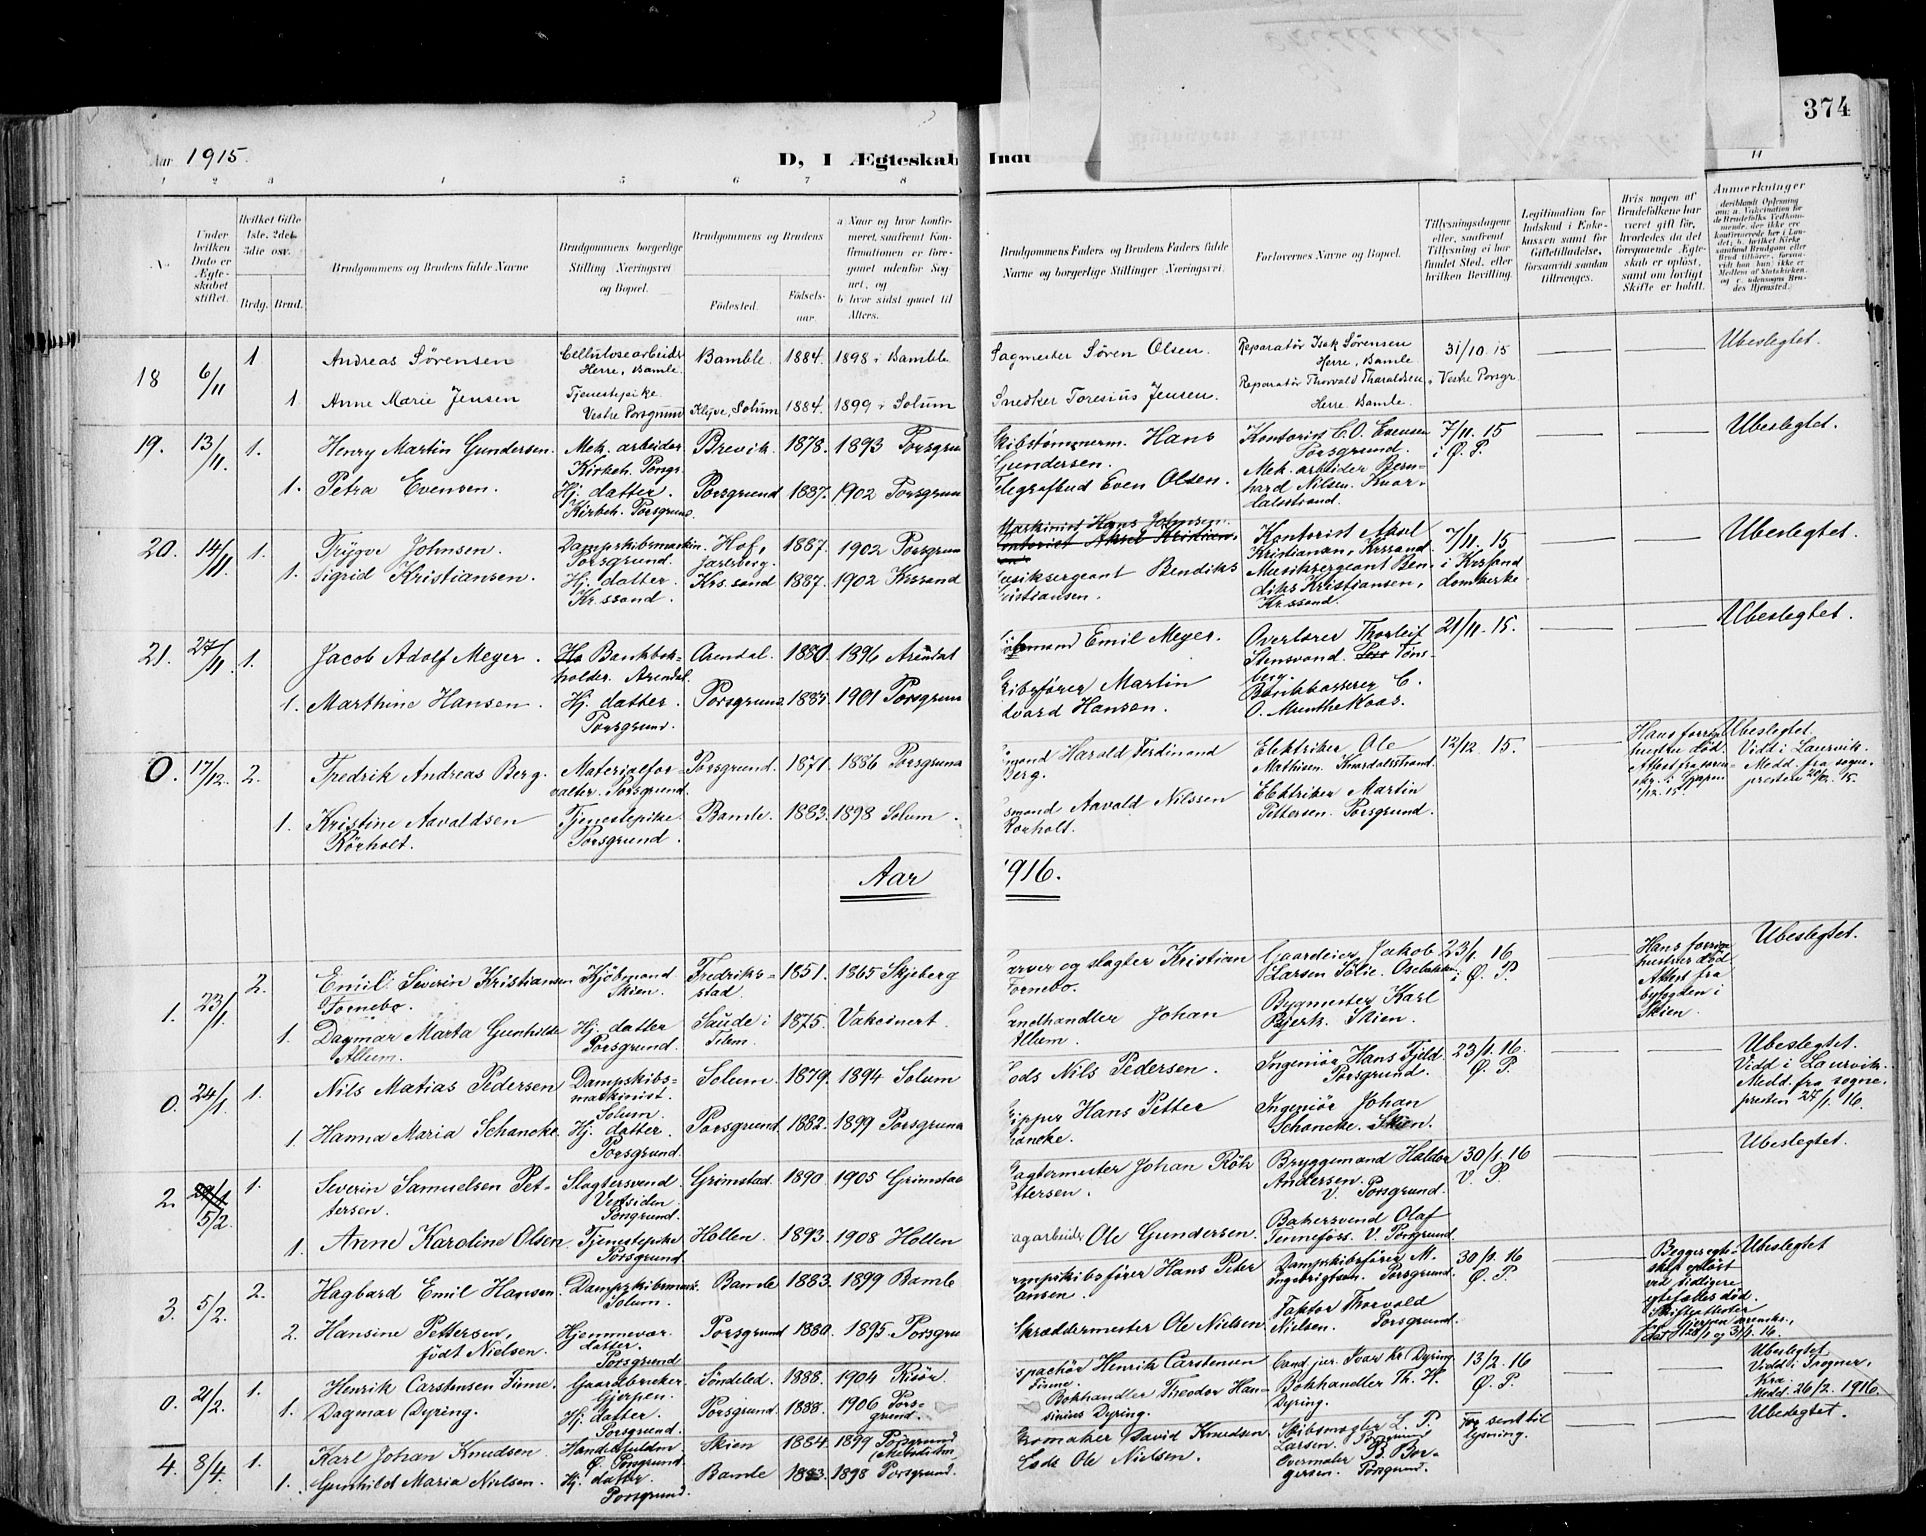 374
Aar 1915.
D, I Ægteskab
1 2 3 4 5 6 7 8 11
Under hvilken Dato er Ægteskabet stiftet.
Hvilket Gifte 1ste, 2det, 3die osv.
Brdg. Brud.
Brudgommens og Brudens fulde Navne
Brudgommens borgerlige Stilling Næringsvei og Bopæl.
Brudgommens og Brudens
Fødested.
Fødselsaar.
a Naar og hvor konfirmeret, saafremt Konfirmationen er foregaaet udenfor Sognet, og b hvor sidst gaaet til Alters.
Brudgommens Faders og Brudens Faders fulde Navne og borgerlige Stillinger Næringsvei.
Forlovernes Navne og Bopæl.
Tillysningsdagene eller, saafremt Tillysning ei har fundet Sted, efter hvilken Bevilling.
Legitimation for Indskud i Enkekassen samt for Giftetilladelse, forsaavidt saadan tiltrænges.
Hvis nogen af Brudefolkene har været gift før, hvorledes da det foregaaende Ægteskab er opløst, samt om lovligt Skifte er holdt.
Anmerkninger
18 6/11 1 Andreas Sørensen Cellulosearbeider Herre, Bamle Bamble 1884. 1898 i Bamble Sagmester Søren Olsen. Reparatør Isak Sørensen Herre, Bamle 31/10 15 Ubeslegtet.
1 Anne Marie Jensen Tjenestepike Vestre Porsgrund Klyve, Solum 1884. 1899 i Solum Snedker Toresius Jensen. Reparatør Thorvald Tharaldsen, Herre. Bamble. Vestre Porsgr
19. 13/11 1. Henry Martin Gundersen. Mek. arbeider Kirkeh. Porsgr. Brevik. 1878. 1893 Porsgrun Skibstømmerm. Hans Gundersen. Kontorist C.O. Evensen Porsgrund. 7/11. 15 i Ø. P. Ubeslegtet.
1. Petra Evensen. Hj. datter. Kirkeh. Porsgrund. Porsgrund 1887. 1902 Porsgrun Telegrafbud Even Olsen. Mek. arbeider Bernhard Nilsen. Knardalsstrand.
20. 14/11 1. Trygve Johnsen. Dampskibsmaskin. Porsgrund. Hof, Jarlsberg. 1887. 1902 Porsgrun Maskinist Hans Johnsen. Kontorist Aksel Kristiansen, Krssand 7/11. 15 i Krssand domkirke Ubeslegtet.
1. Sigrid Kristiansen. Hj. datter. Kr.ssand. Krs.sand 1887. 1902 Krssand Musiksergeant Bendiks Kristiansen. Musiksergeant Bendiks Kristiansen, Kr.ssand.
21. 27/11 1. Jacob Adolf Meyer. Bankbokholder. Arendal. Arendal. 1880. 1896 Arendal Emil Meyer. Overlærer Thorleif Stensvand. Tønsberg. 21/11. 15. Ubeslegtet.
1. Marthine Hansen. Hj. datter. Porsgrund. Porsgrund 1885. 1901 Porsgrun Skibsfører Martin Edvard Hansen. Bankkasserer C. O. Munthe Kaas.
O. 17/12. 2. Fredrik Andreas Berg. Materialforvalter. Porsgrund. Porsgrund. 1871. 1886 Porsgrund Harald Ferdinand Berg. Elektriker Ole Mathisen. Knardalstrand. 12/12 15. Hans forrige hustru død. Attest fra Ubeslegtet Viddi Laurvik. Medd. fra sognepresten 20/12. 15.
1. Kristine Aavaldsen Rörholt. Tjenestepike. Porsgrund. Bamle. 1883. 1898 Solum. Aavald Nilssen Rorholt. Elektriker Martin Pettersen. Porsgrund.
Aar 1916.
1. 23/1. 2. Emil Severin Kristiansen Tornebo. Kjöbmand Skien. Fredrikstad. 1851. 1865 Skjeberg Garver og slagter Kristian Tornebo. Gaardeier Jakob Larsen Sölie. Osebakken. 23/1. 16 i Ø. P Hans forrige hustru død Attest fra byfogden i Skien. Ubeslegtet.
1. Dagmar Marta Gunhilde Alhem. Hj. datter Porsgrund. Saude i Telem. 1875. Vaksinert. Landhandler Johan Alhem. Bygmester Karl Bjerk. Skien.
0. 24/1. 1. Nils Matias Pedersen Dampskibsmaskinist. Solum. Solum. 1879. 1894 Solum Lods Nils Pedersen. Ingeniør Hans Fjeld. Porsgrund. 23/1. 16. Ø. P Ubeslegtet. Vidd i Laurvik. Medd. fra sognepresten 24/1. 16.
1. Hanna Maria Schancke Hj. datter. Porsgrund. Porsgrund 1882. 1899 Porsgrund Skipper Hans Petter Schancke. Ingeniør Johan Schancke. Skien.
2. 5/2. 1. Severin Samuelsen Pettersen. Slagtersvend Vestsiden Porsgrund. Grimstad. 1890 1905 Grimstad Slagtermester Johan Pettersen. Bryggemand Haldor Andersen. V. Porsgrund. 30/1. 16 V. P. Ubeslegtet.
1. Anne Karoline Olsen. Tjenestepike Porsgrund. Hollen. 1893. 1908 Hollen Sagarbeider Ole Gundersen. Bakersvend Olaf Tennefoss. V. Porsgrund.
3. 5/2. 2. Hagbard Emil Hansen. Dampskibsmask. Solum. Bamle 1883. 1899 Bamb Dampskibsfører Hans Peter Hansen. Dampskibsfører M. Ingebrigtsen. Porsgrund. 30/1. 16 Ø. P. Begges egteskap opløst ved tidligere egtefælles død. Ubeslegtet
2. Hansine Pettersen, født Nielsen. Hjemmevær. datter. Porsgrund Porsgrund 1880. 1895 Porsgru Skræddermester Ole Nielsen Faktor Thorvald Nielsen. Porsgrund.
0. 21/2. 1. Henrik Carstensen Finne. Gaardbruker Gjerpen. Söndeled. 1888. 1904 Risör Henrik Carstensen Finne. Cand jur. Ivar Kr. Dyring 13/2. 16 Ø. P. Ubeslegtet Viddi i Sogner, Kra. Medd. 26/2. 1916.
1. Dagmar Dyring. Hj. datter. Porsgrund. Porsgrund. 1888. 1906 Porsgrund. Bokhandler Theodor Hansinius Dyring. Bokhandler Th. H. Dyring.
4. 8/4. 1. Karl Johan Knudsen Ø. Porsgrund. Skien 1884. 1899 Porsgrund David Knudsen. Skibsmægler L. P. Larsen. Porsgrund For sent til lysning. Ubeslegtet.
1. Gunhild Maria Nielsen. Hj. datter. Porsgrund. Bamle 1883. 1898 Porsgrund. Lods Ole Nielsen. Overmaler B. Borgersen. Porsgrund.